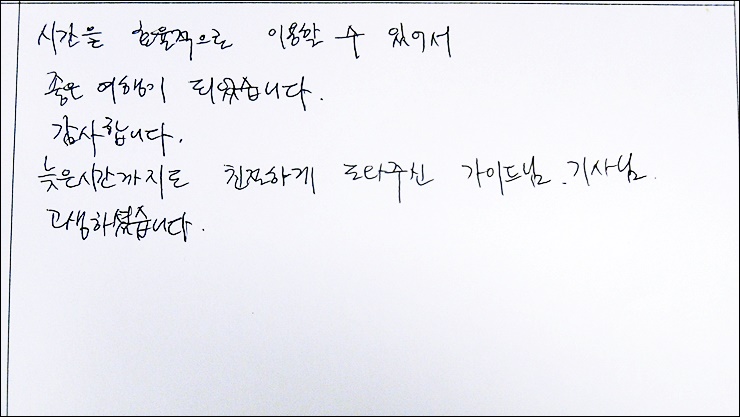 시간을 효율적으로 이용할 수 있어서
좋은 여행이 되었습니다.
감사합니다.
늦은시간까지도 친절하게 도와주신 가이드님. 기사님.
고생하셨습니다.